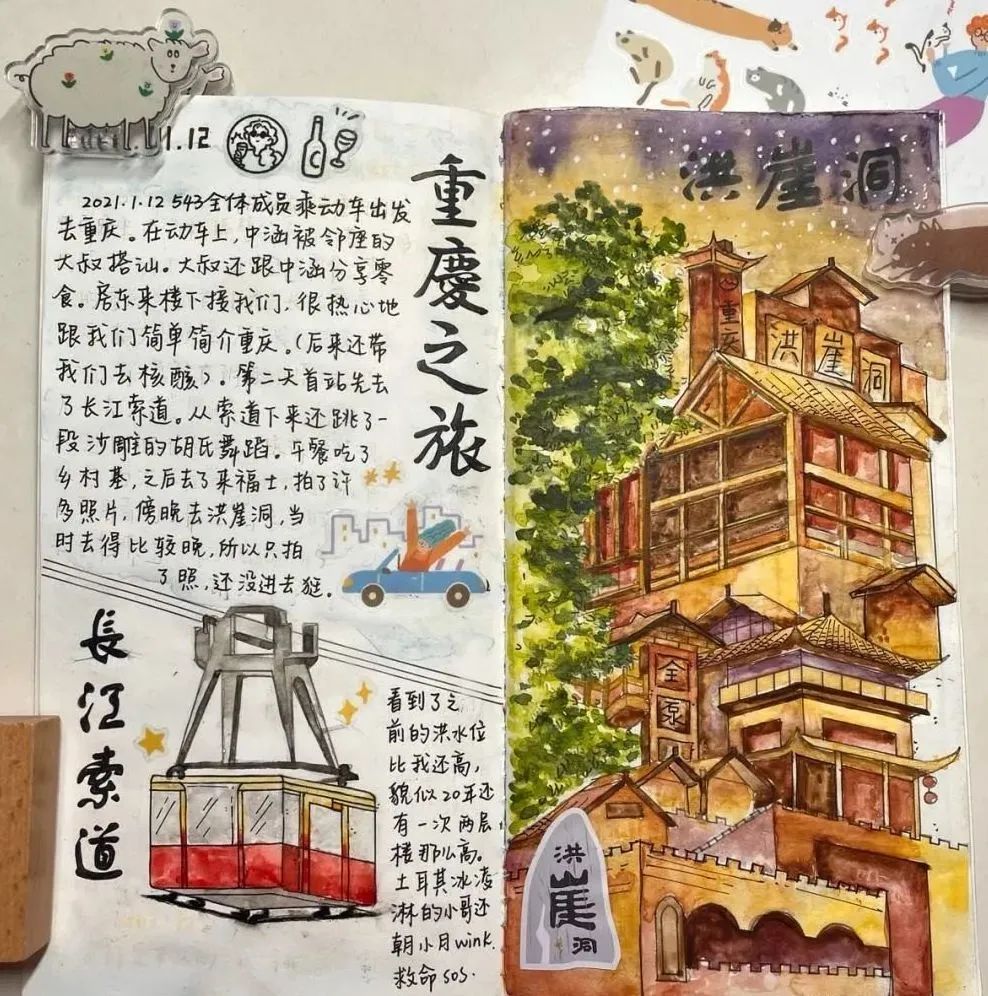 1.12
2021.1.12 543全体成员乘动车出发
去重庆。在动车上,中涵被邻座的
大叔搭讪。大叔还跟中涵分享零
食。房东来楼下接我们,很热心地
跟我们简单简介重庆。(后来还带
我们去核酸)。第二天首站先去
了长江索道。从索道下来还跳了一
段沙雕的胡氏舞蹈。午餐吃了
乡村基,之后去了来福士,拍了许
多照片,傍晚去洪崖洞,当
时去得比较晚,所以只拍
了照,还没进去逛。
重慶之旅
長江索道
看到了之
前的洪水位
比我还高,
貌似20年还
有一次两层
楼那么高。
土耳其冰凌
淋的小哥还
朝小月wink.
救命sos.
洪崖洞
重庆
洪崖洞
洪崖洞